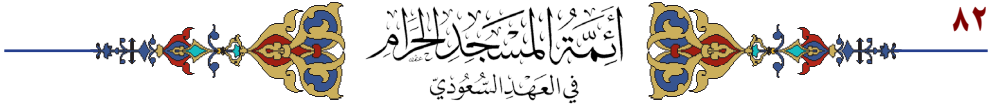 ٨٢
أَئِمَّةُ المَسْجِدِ الحَرَامِ
فِي العَهْدِ السُّعُودِيّ